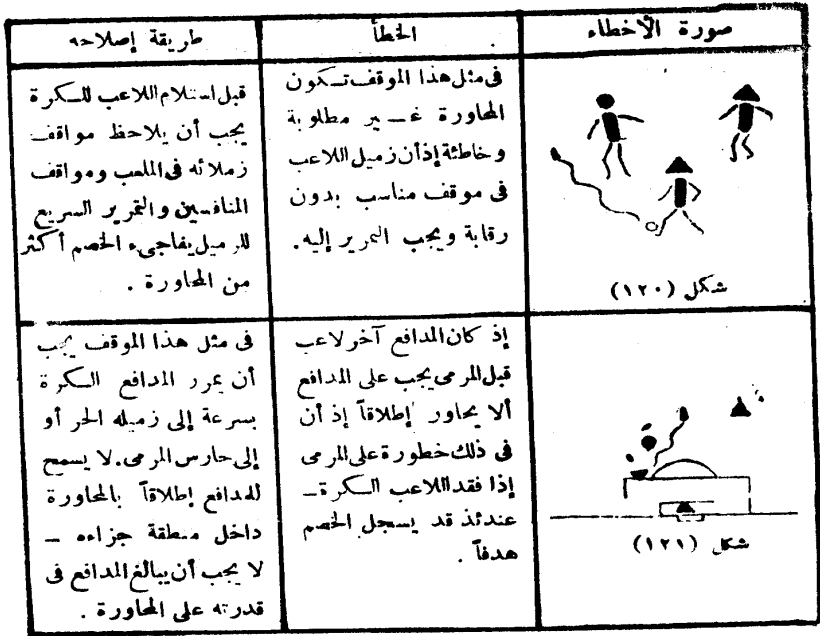 صورة الأخطاء
الخطأ
طريقة إصلاحه
شكل (١٢٠)
فى مثل هذا الموقف تكون
المحاورة غير مطلوبة
وخاطئة إذ أن زميل اللاعب
فى موقف مناسب بدون
رقابة ويجب التمرير إليه.
قبل استلام اللاعب للكرة
يجب أن يلاحظ مواقف
زملائه فى الملعب ومواقف
المنافسين والتمرير السريع
للزميل يفاجىء الخصم أكثر
من المحاورة .
شكل (١٢١)
إذ كان المدافع آخر لاعب
قبل المرمى يجب على المدافع
ألا يحاور إطلاقاً إذ أن
فى ذلك خطورة على المرمى
إذا فقد اللاعب الكرة –
عندئذ قد يسجل الخصم
هدفاً .
فى مثل هذا الموقف يجب
أن يمرر المدافع الكرة
بسرعة إلى زميله الحر أو
إلى حارس المرمى. لا يسمح
للمدافع إطلاقاً بالمحاورة
داخل منطقة جزاءه –
لا يجب أن يبالغ المدافع فى
قدرته على المحاورة .